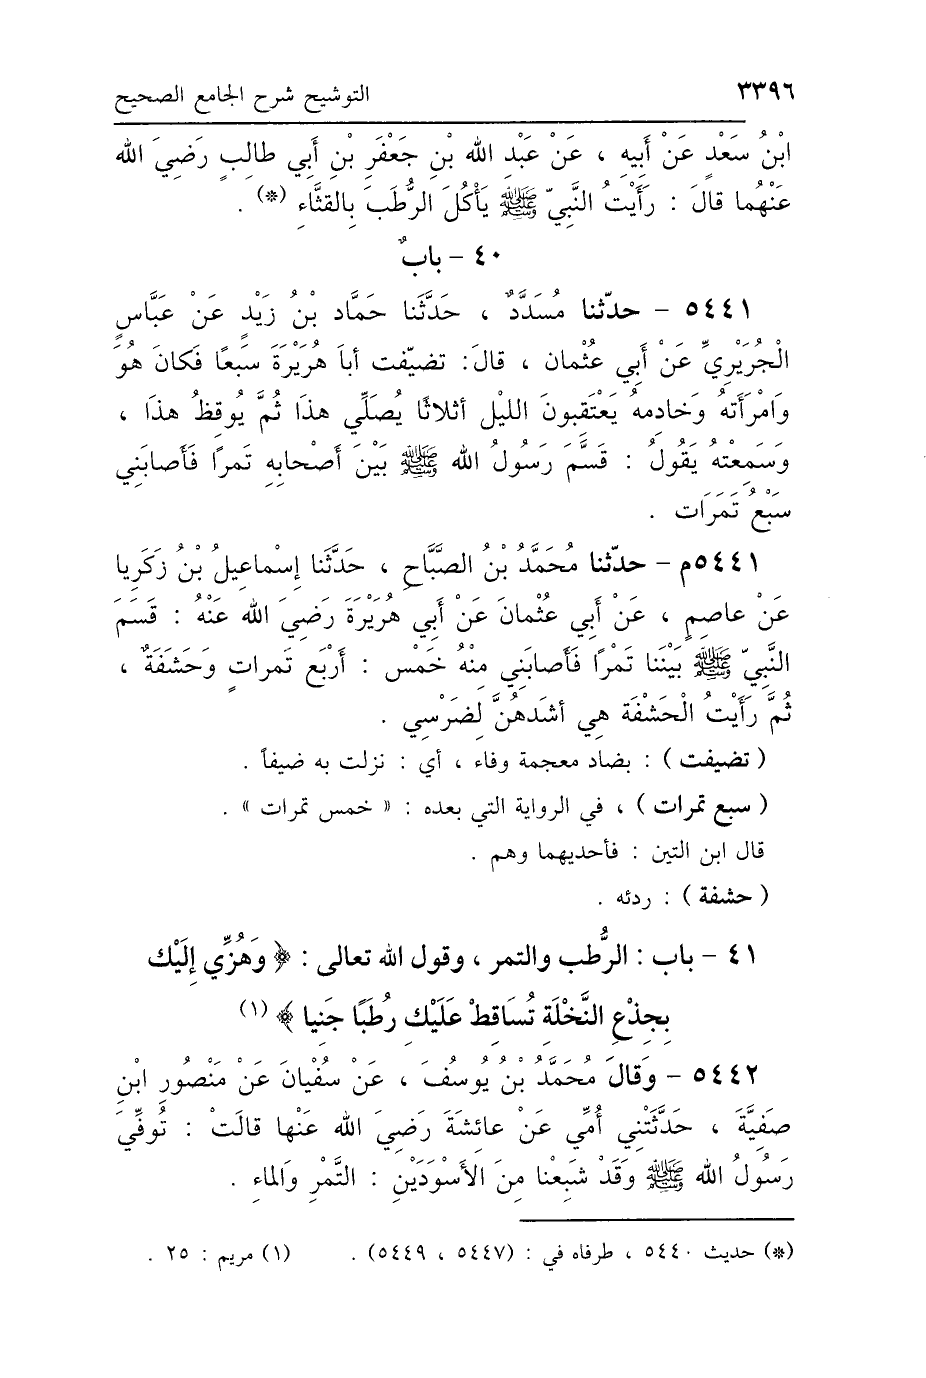 ٣٣٩٦ التوشيح شرح الجامع الصحيح
ابْنُ سَعْدٍ عَنْ أَبِيهِ ، عَنْ عَبْدِ الله بْنِ جَعْفَرِ بْنِ أَبي طالِبٍ رَضيَ الله
عَنْهُما قالَ : رَأَيْتُ النَّبيّ ﷺ يَأْكُلَ الرُّطَبَ بِالقثَّاءِ (*) .
٤٠ – بابٌ
٥٤٤١ – حدّثنا مُسَدَّدٌ ، حَدَّثَنا حَمَّاد بْنُ زَيْدٍ عَنْ عَبَّاسٍ
الْجُرَيْرِيِّ عَنْ أَبي عُثْمان ، قالَ: تضيّفت أباَ هُرَيْرَةَ سَبعًا فَكانَ هُوَ
وَامْرَأَتهُ وَخادِمهُ يَعْتَقبونَ الليْل أثلاثًا يُصَلِّي هذَا ثُمَّ يُوقظُ هذَا ،
وَسَمِعْتهُ يَقُولُ : قَسَّمَ رَسُولُ الله ﷺ بَيْنَ أَصْحابِهِ تَمرًا فَأَصابَنِي
سَبْعُ تَمَرَات .
٥٤٤١م – حدّثنا مُحَمَّدُ بْنُ الصَّبَّاحِ ، حَدَّثَنا إسْماعيلُ بْنُ زَكَرِيا
عَنْ عاصِمٍ ، عَنْ أَبي عثْمانَ عَنْ أَبي هُرَيْرَةَ رَضيَ الله عَنْهُ : قَسَمَ
النَّبيّ ﷺ بَيْنَنا تَمْرًا فَأَصابَنِي مِنْهُ خَمْس : أَرْبَع تَمرات وَحَشَفَةٌ ،
ثُمَّ رَأَيْتُ الْحَشْفَة هِي أشَدهُنَّ لِضَرْسِي .
( تضيفت ) : بضاد معجمة وفاء ، أي : نزلت به ضيفاً .
( سبع تمرات ) ، في الرواية التي بعده : « خمس تمرات » .
قال ابن التين : فأحديهما وهم .
( حشفة ) : ردئه .
٤١ – باب : الرُّطب والتمر ، وقول الله تعالى : ﴿ وَهُزِّي إِلَيْك
بِجِذْعِ النَّخْلَة تُسَاقطْ عَلَيْك رُطَبًا جَنِيا ﴾ (١)
٥٤٤٢ – وَقالَ مُحَمَّدُ بْنُ يُوسفَ ، عَنْ سفْيانَ عَنْ مَنْصُورِ ابْنِ
صَفيَّةَ ، حَدَّثَتْنِي أُمِّي عَنْ عائشَةَ رَضِيَ الله عَنْها قالَتْ : تُوفِّيَ
رَسُولُ الله ﷺ وَقَدْ شَبِعْنا مِنَ الأَسْوَدَيْنِ : التَّمْرِ وَالماءِ .
(*) حديث ٥٤٤٠ ، طرفاه في : (٥٤٤٧ ، ٥٤٤٩) . (١) مريم : ٢٥ .